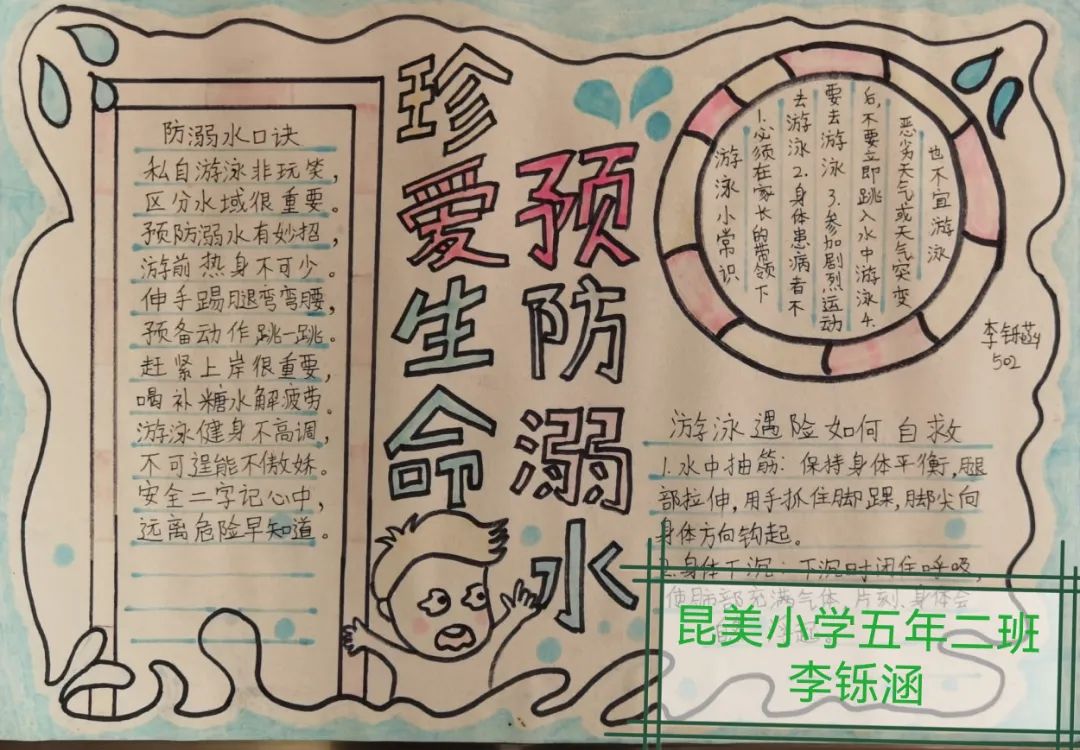 防溺水口诀
私自游泳非玩笑，
区分水域很重要。
预防溺水有妙招，
游前热身不可少。
伸手踢腿弯弯腰，
预备动作跳一跳。
赶紧上岸很重要，
喝补糖水解疲劳。
游泳健身不高调，
不可逞能不傲娇。
安全二字记心中，
远离危险早知道。
珍爱生命
预防溺水
游泳小常识
1.必须在家长的带领下
去游泳2.身体患病者不
要去游泳3.参加剧烈运动
后，不要立即跳入水中游泳4.
恶劣天气或天气突变
也不宜游泳
李铄涵
502
游泳遇险如何自救
1.水中抽筋：保持身体平衡，腿
部拉伸，用手抓住脚踝，脚尖向
身体方向钩起。
2.身体下沉：下沉时闭住呼吸，
使肺部充满气体，片刻，身体会
昆美小学五年二班
李铄涵